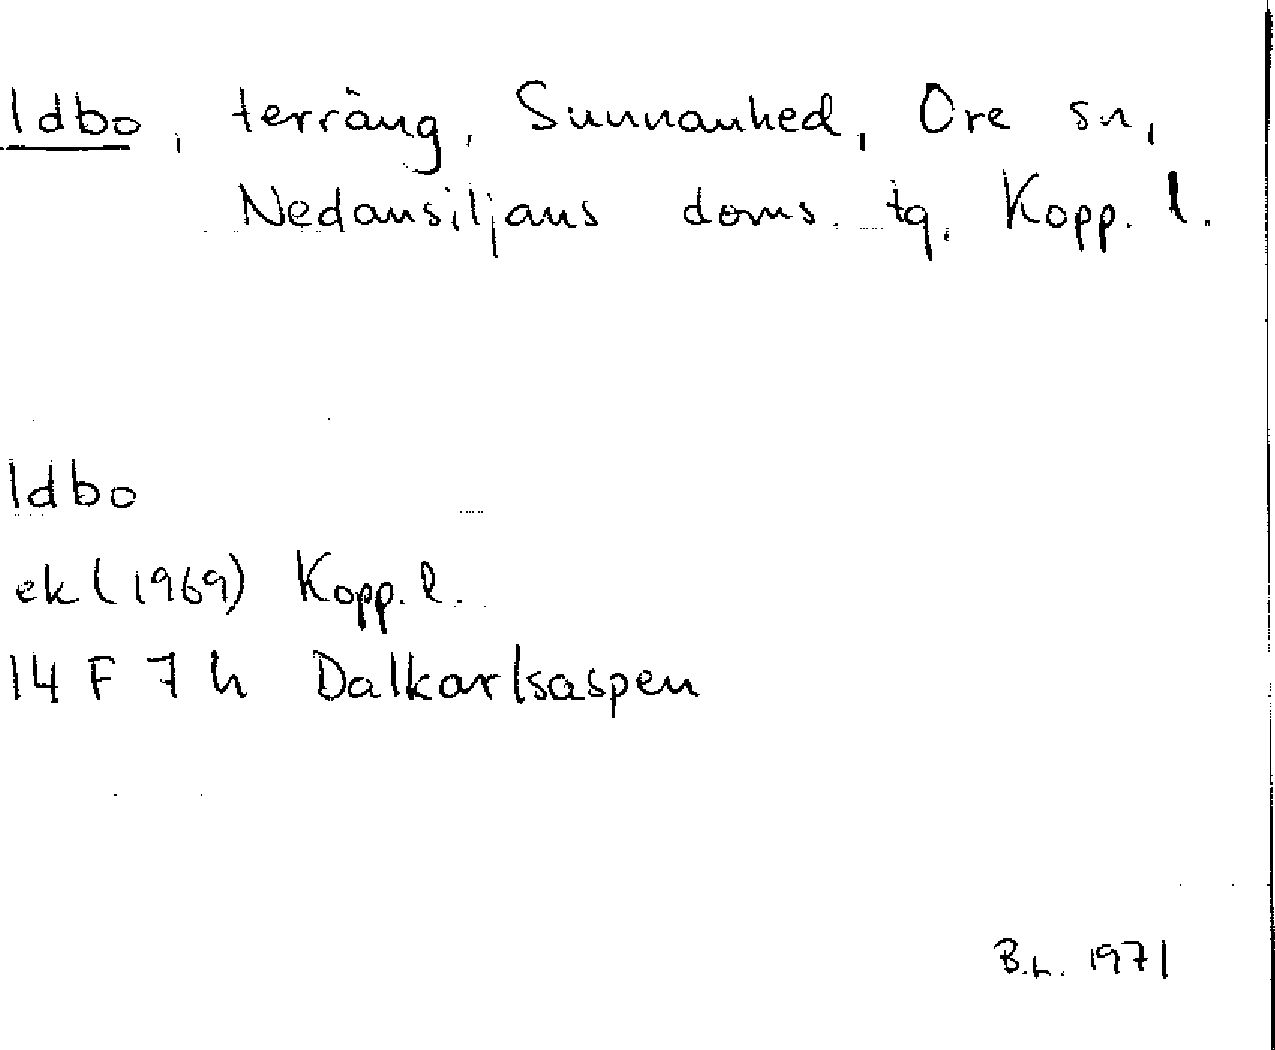 Idbo, terräng, Sunnanhed, Ore sn,
Nedansiljans doms. tg. Kopp. l.
Idbo
ek (1969) Kopp. l.
14 F 7 h Dalkarlsaspen
B.L. 1971